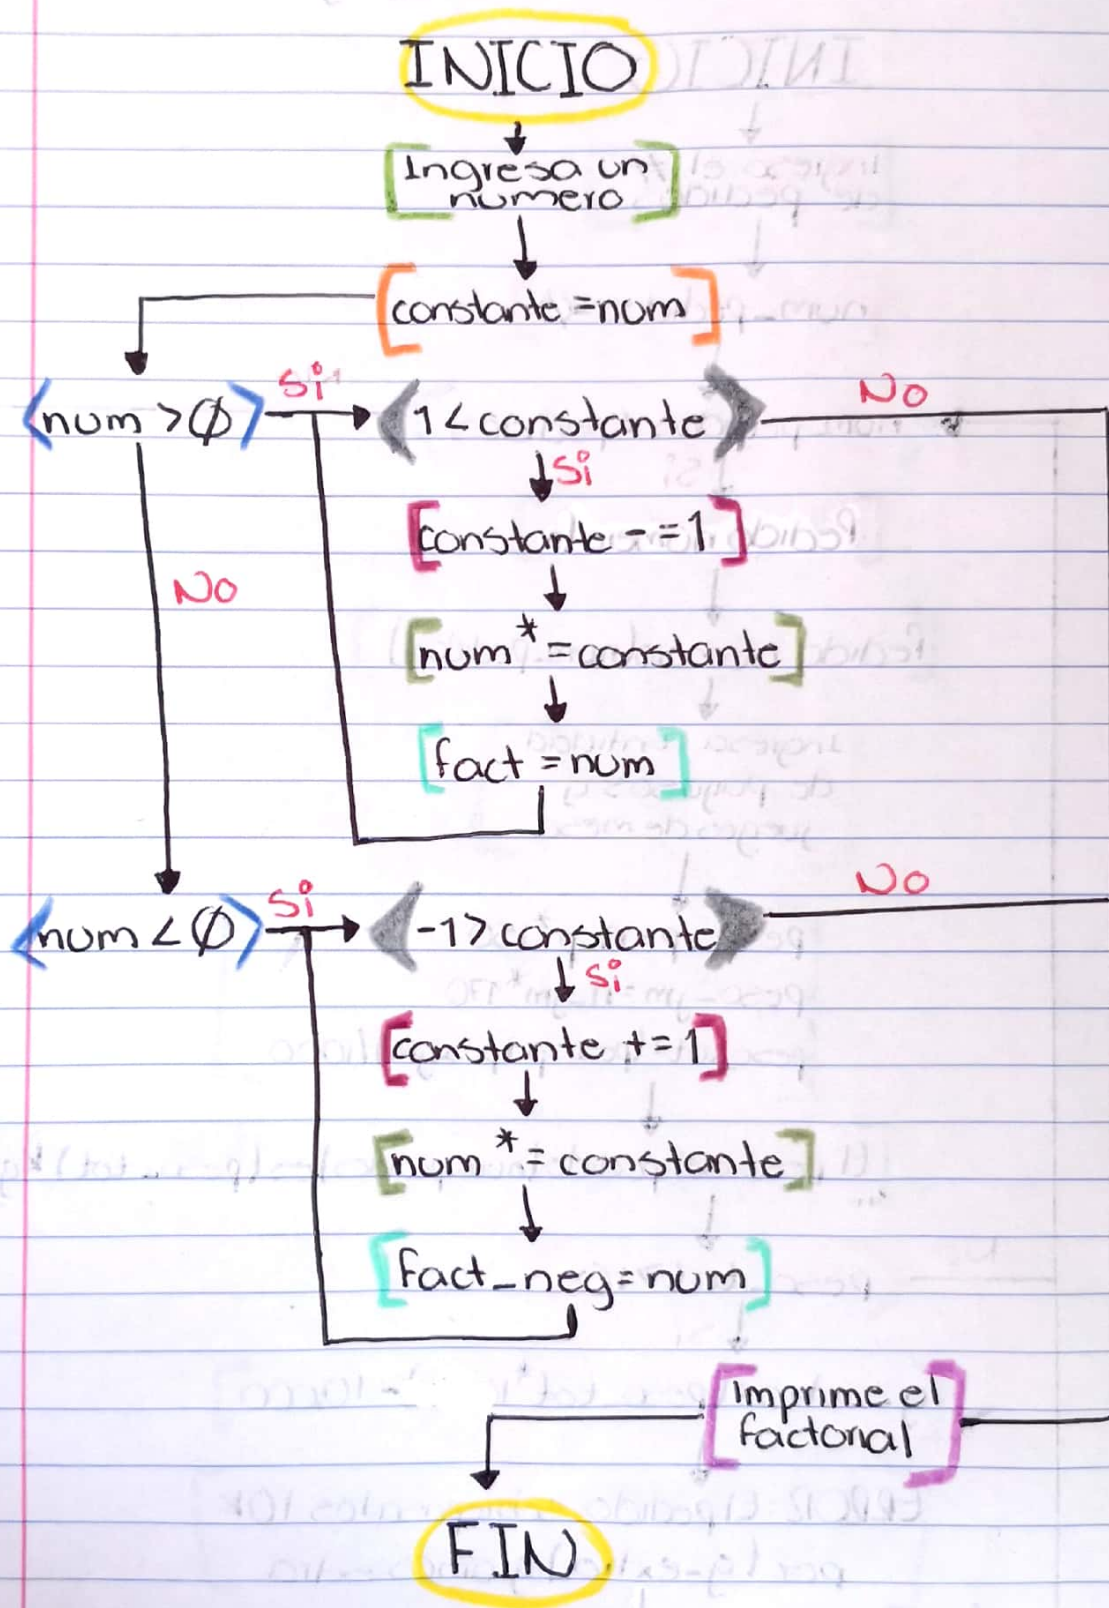 INICIO
Ingresa un
numero
constante = num
num > Ø
Si
1 < constante
No
Si
constante - = 1
No
num * = constante
fact = num
num < Ø
Si
-1 > constante
No
Si
constante + = 1
num * = constante
fact_neg = num
Imprime el
factorial
FIN